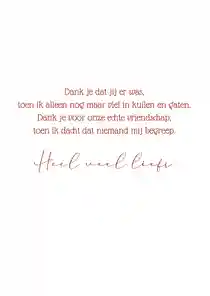 Dank je dat jij er was,
toen ik alleen nog maar viel in kuilen en gaten.
Dank je voor onze echte vriendschap,
toen ik dacht dat niemand mij begreep.
Heil veel liefs